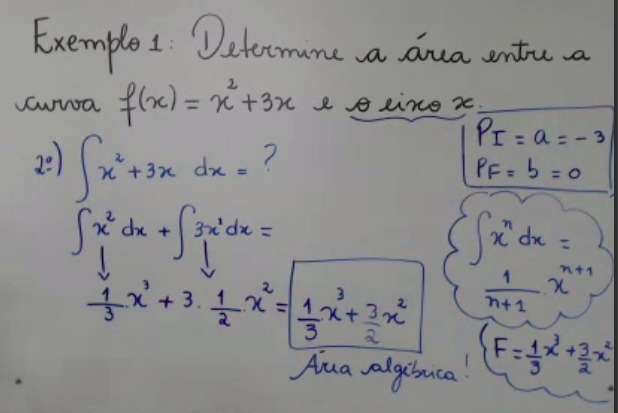 Exemplo 1: Determine a área entre a
curva f(x) = x² + 3x e o eixo x.
P_I = a = -3
P_F = b = 0
2º) ∫ x² + 3x dx = ?
∫ x² dx + ∫ 3x¹ dx =
1/3 . x³ + 3 . 1/2 . x² = 1/3 x³ + 3/2 x²
Área algébrica!
∫ xⁿ dx =
1/(n+1) . xⁿ⁺¹
F = 1/3 x³ + 3/2 x²